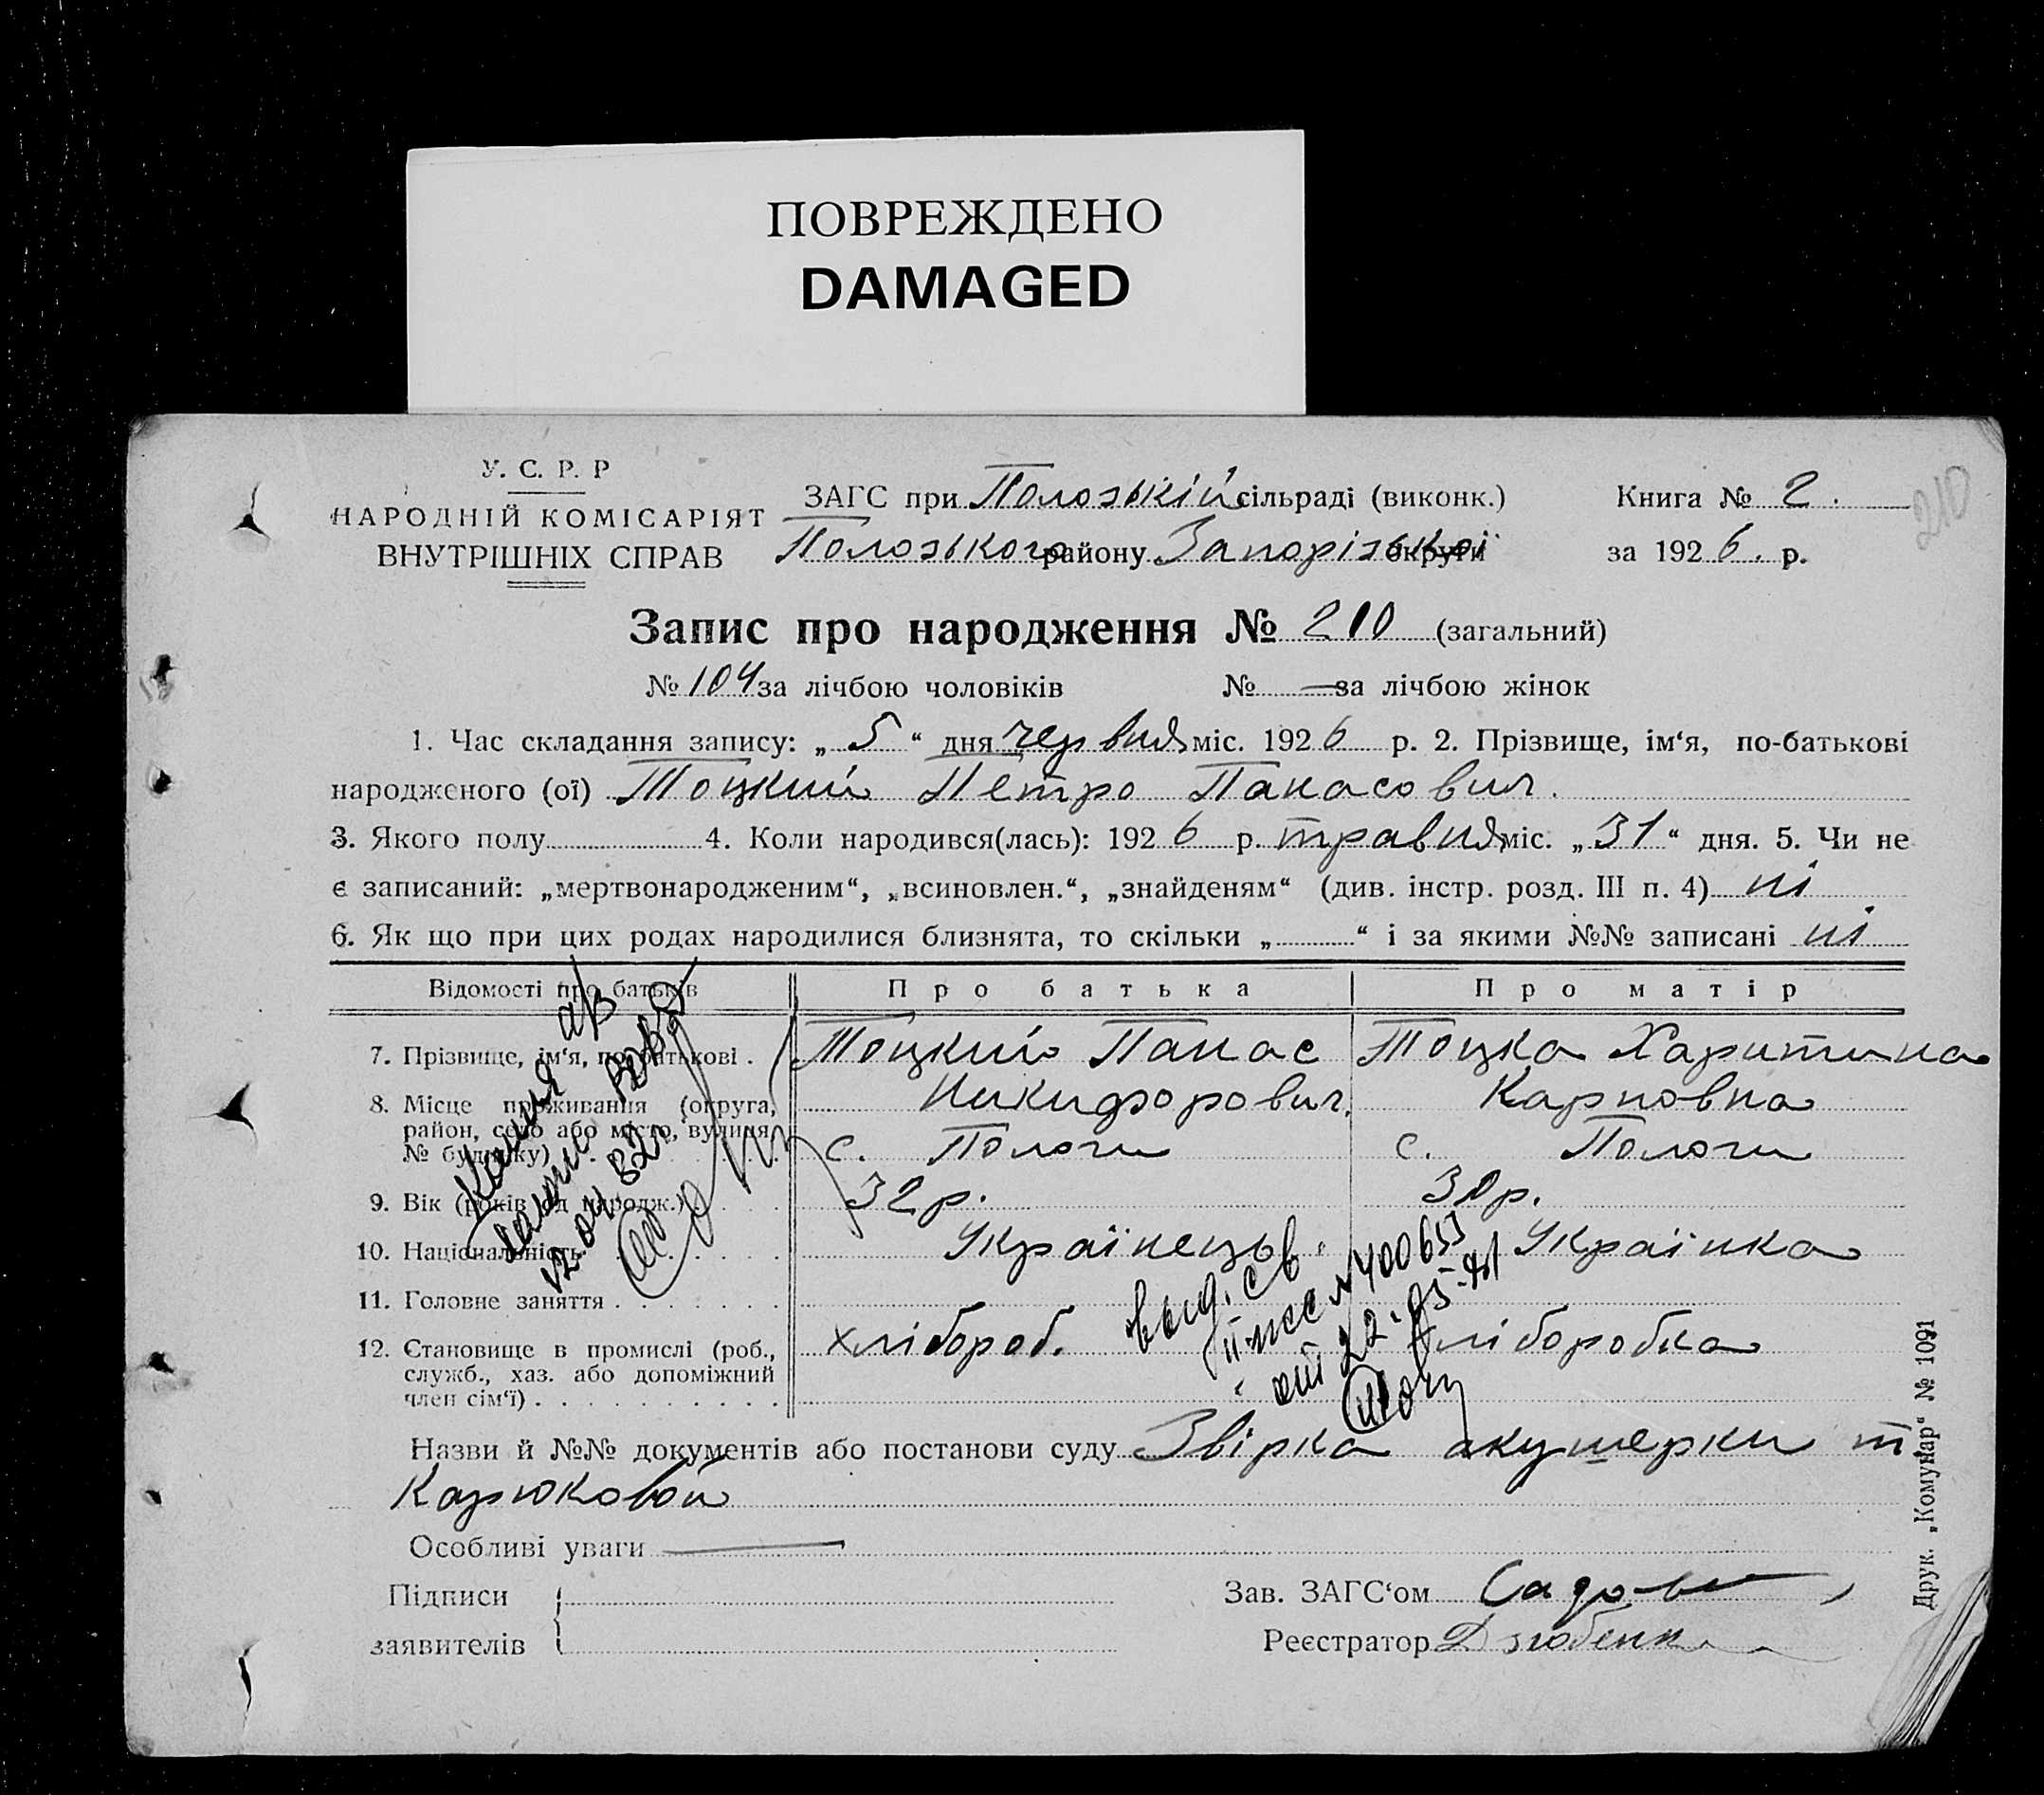 ПОВРЕЖДЕНО
DAMAGED
210
У. С. Р. Р
НАРОДНІЙ КОМІСАРІЯТ
ВНУТРІШНІХ СПРАВ
ЗАГС при Полозькій сільраді (виконк.)
Полозького району Запорізької округи
Книга № 2.
за 1926. р.
Запис про народження № 210 (загальний)
№ 104 за лічбою чоловіків № — за лічбою жінок
1. Час складання запису: „ 5 “ дня червня міс. 1926 р. 2. Прізвище, ім‘я, по-батькові
народженого (ої) Тоцкий Петро Панасович.
3. Якого полу 4. Коли народився(лась): 1926 р. травня міс. „31“ дня. 5. Чи не
є записаний: „мертвонародженим“, „всиновлен.“, „знайденям“ (див. інстр. розд. III п. 4) ні
6. Як що при цих родах народилися близнята, то скільки „ “ і за якими №№ записані ні
Відомості про батьків Про батька Про матір
7. Прізвище, ім‘я, по-батькові . Тоцкий Панас Тоцка Харитина
Никифорович. Карповна
8. Місце проживання (округа,
район, село або місто, вулиця,
№ будинку) с. Пологи с. Пологи
9. Вік (років від народж.) 32 р. 30 р.
10. Національність Українець. Українка
11. Головне заняття
12. Становище в промислі (роб.,
служб., хаз. або допоміжний
член сім‘ї) хлібороб. хліборобка
Копия а/з
выд. св.
от 22.05.
Назви й №№ документів або постанови суду Звірка акушерки т
Карюковой
Особливі уваги —
Підписи
заявителів
Зав. ЗАГС‘ом
Реєстратор
Друк. „Комунар“ № 1091